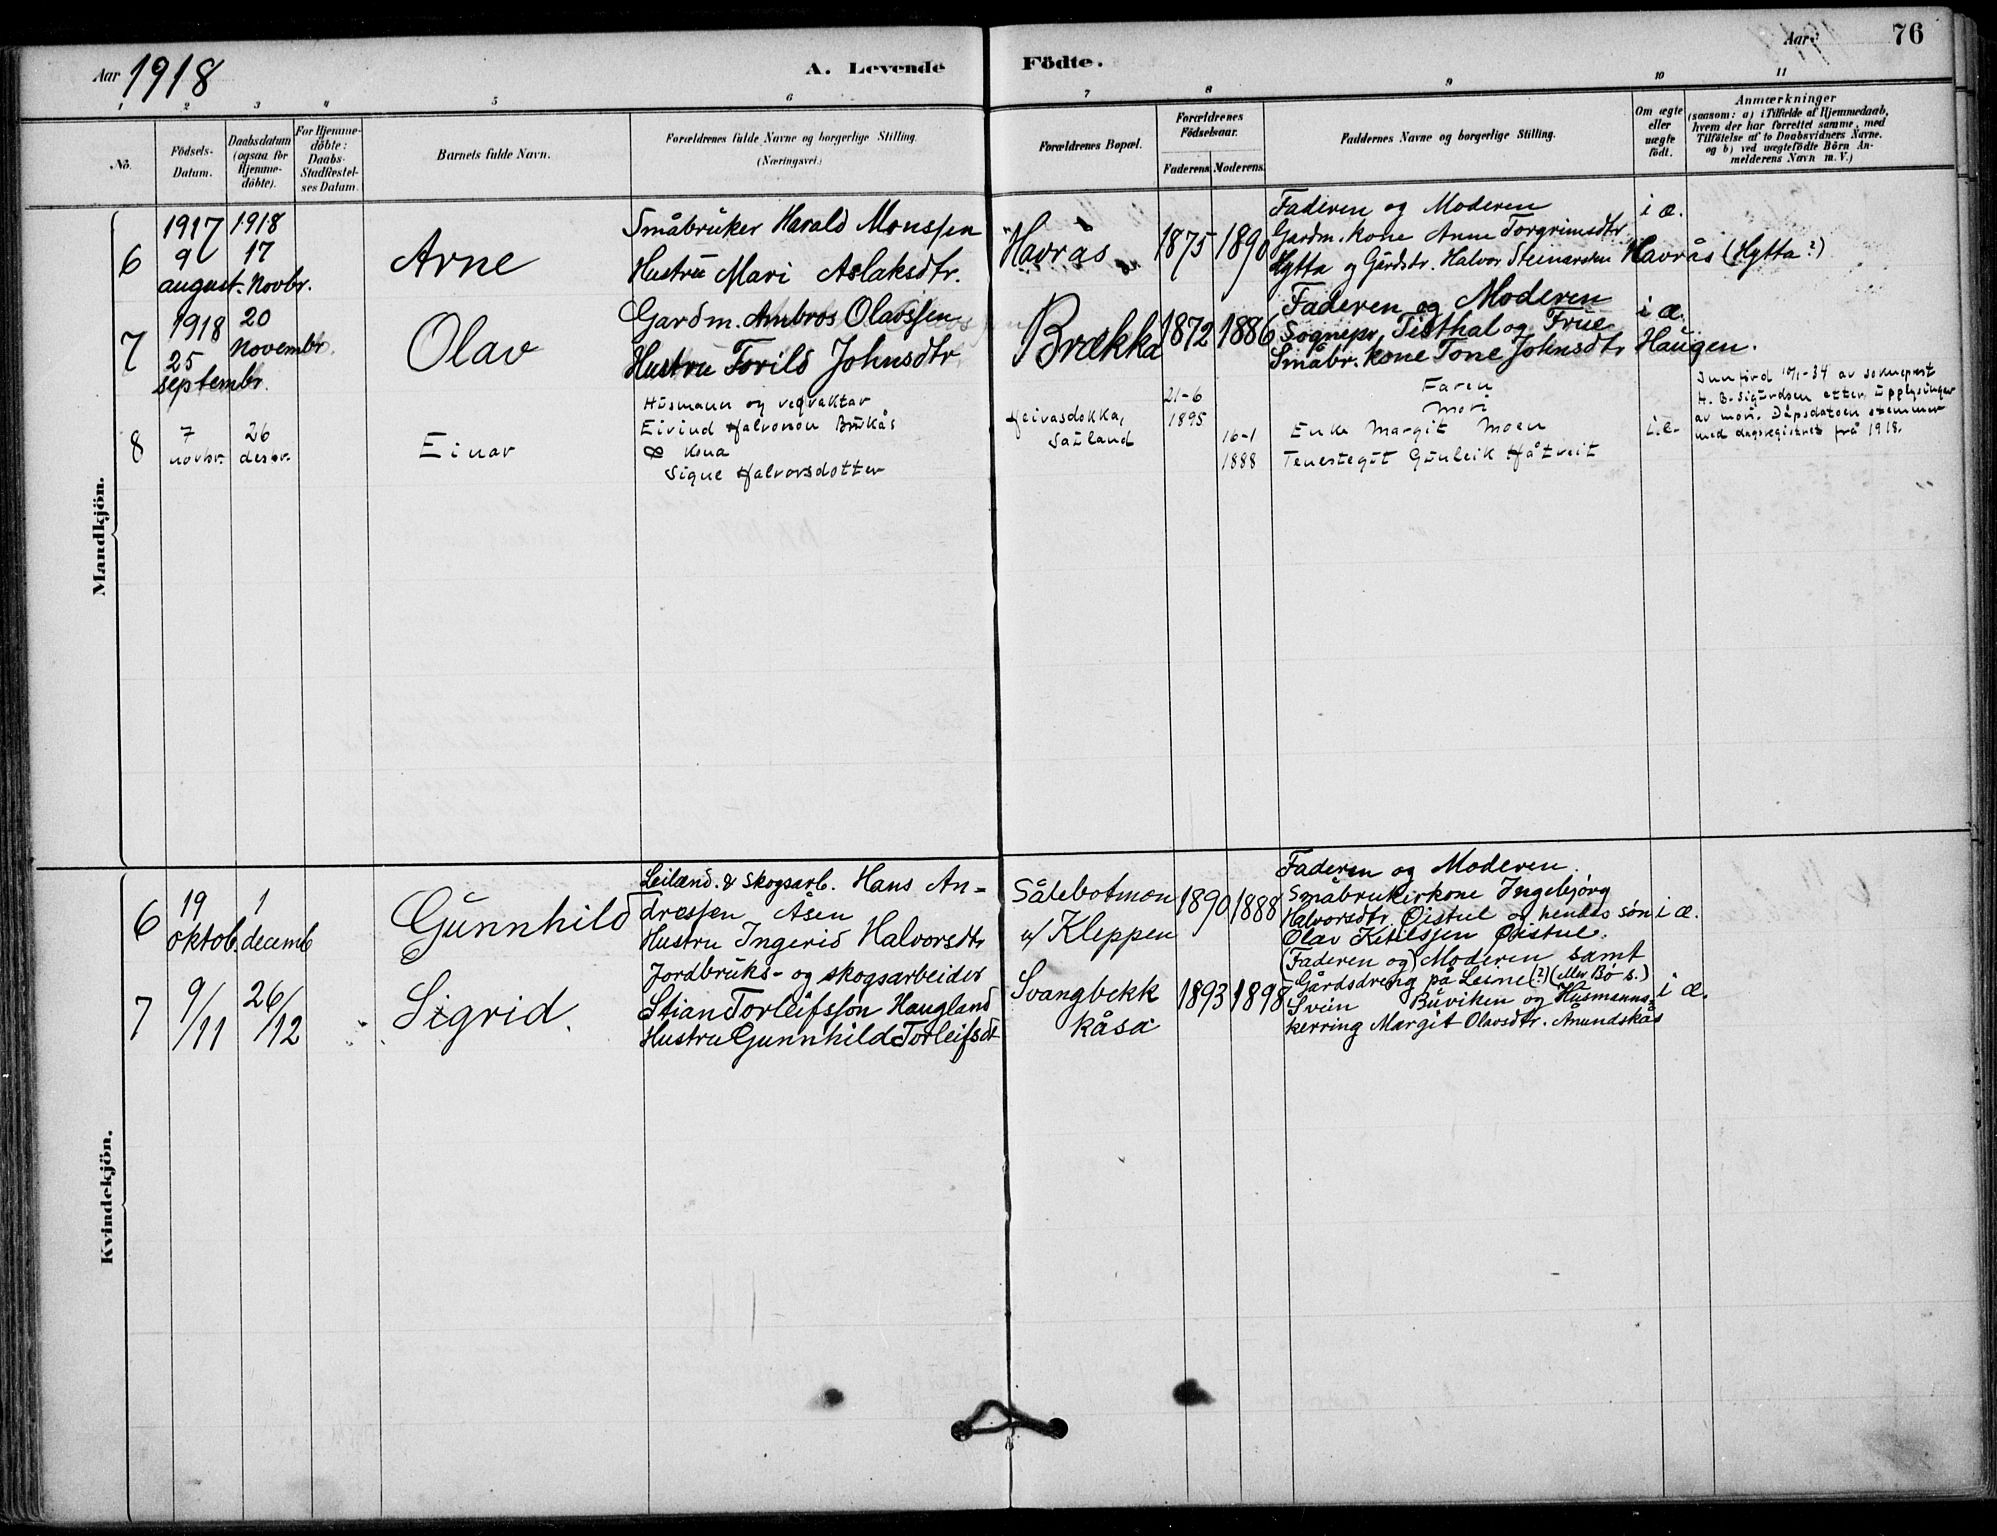 Aar 1918
A. Levende Födte.
Aar
76
1 2 3 4 5 6 7 8 9 10 11
No.
Födsels-
Datum.
Daabsdatum
(ogsaa for
Hjemme-
döbte).
For Hjemme-
döbte:
Daabs-
Stadfæstel-
ses Datum.
Barnets fulde Navn.
Forældrenes fulde Navne og borgerlige Stilling.
(Næringsvei.)
Forældrenes Bopæl.
Forældrenes
Födselsaar.
Faderens. Moderens.
Faddernes Navne og borgerlige Stilling.
Om ægte
eller
uægte
födt.
Anmærkninger
(saasom: a) i Tilfælde af Hjemmedaab,
hvem der har forrettet samme, med
Tilföielse af to Daabsvidners Navne.
og b) ved uægtefödte Börn An-
melderens Navn m. V.)
Mandkjön.
6
1917
9
august.
1918
17
Novbr.
Arne
Småbruker Harald Monssen
Hustru Mari Aslaksdtr.
Havrås
1875
1890
Faderen og Moderen
Gardm. kone Anne Torgrimsdtr
Hytta og Gårdstr. Halvor Steinarsen Havrås (Hytta?)
i æ.
7
1918
25
septembr.
20
Novembr.
Olav
Gardm. Ambros Olavssen
Hustru Torild Johnsdtr
Brække
1872
1886
Faderen og Moderen
Sognepr. Tisthal og Frue
Småbr. kone Tone Johnsdtr Haugen.
i æ.
8
7
novbr.
26
desbr.
Einar
Husmann og vegvaktar
Eivind Halvorson Brukås
& Kona
Signe Halvorsdotter
Heivasdokka,
Sauland
21-6
1895
16-1
1888
Faren
Mori
Enke Margit Moen
Tenestegut Gunleik Håtveit
i.e.
Innførd 10/1-34 av sokneprest
H. B. Sigurdsen etter upplysingar
av mori. Dåpsdatoen stemmer
med dagsregistret frå 1918.
Kvindekjön.
6
19
oktob.
1
decemb
Gunnhild
Leilænd. & skogsarb. Hans An-
dressen Åsen
Hustru Ingerid Halvorsdtr
Såtebotmoen
u/ Kleppen
1890
1888
Faderen og Moderen.
Småbrukerkone Ingebjørg
Halvorsdtr Øistul og hendes søn
Olav Ketilssen Øistul.
i æ.
7
9/11
26/12
Sigrid.
Jordbruks- og skogsarbeider
Stian Torleifsson Haugland
Hustru Gunnhild Torleifsdt
Svangbekk
kåsa
1893
1898
(Faderen og) Moderen samt
Gårdsdreng på Leine (?) (Mer Bø s.)
Svein Buviken og Husmanns-
kerring Margit Olavsdtr. Amundskås
i æ.